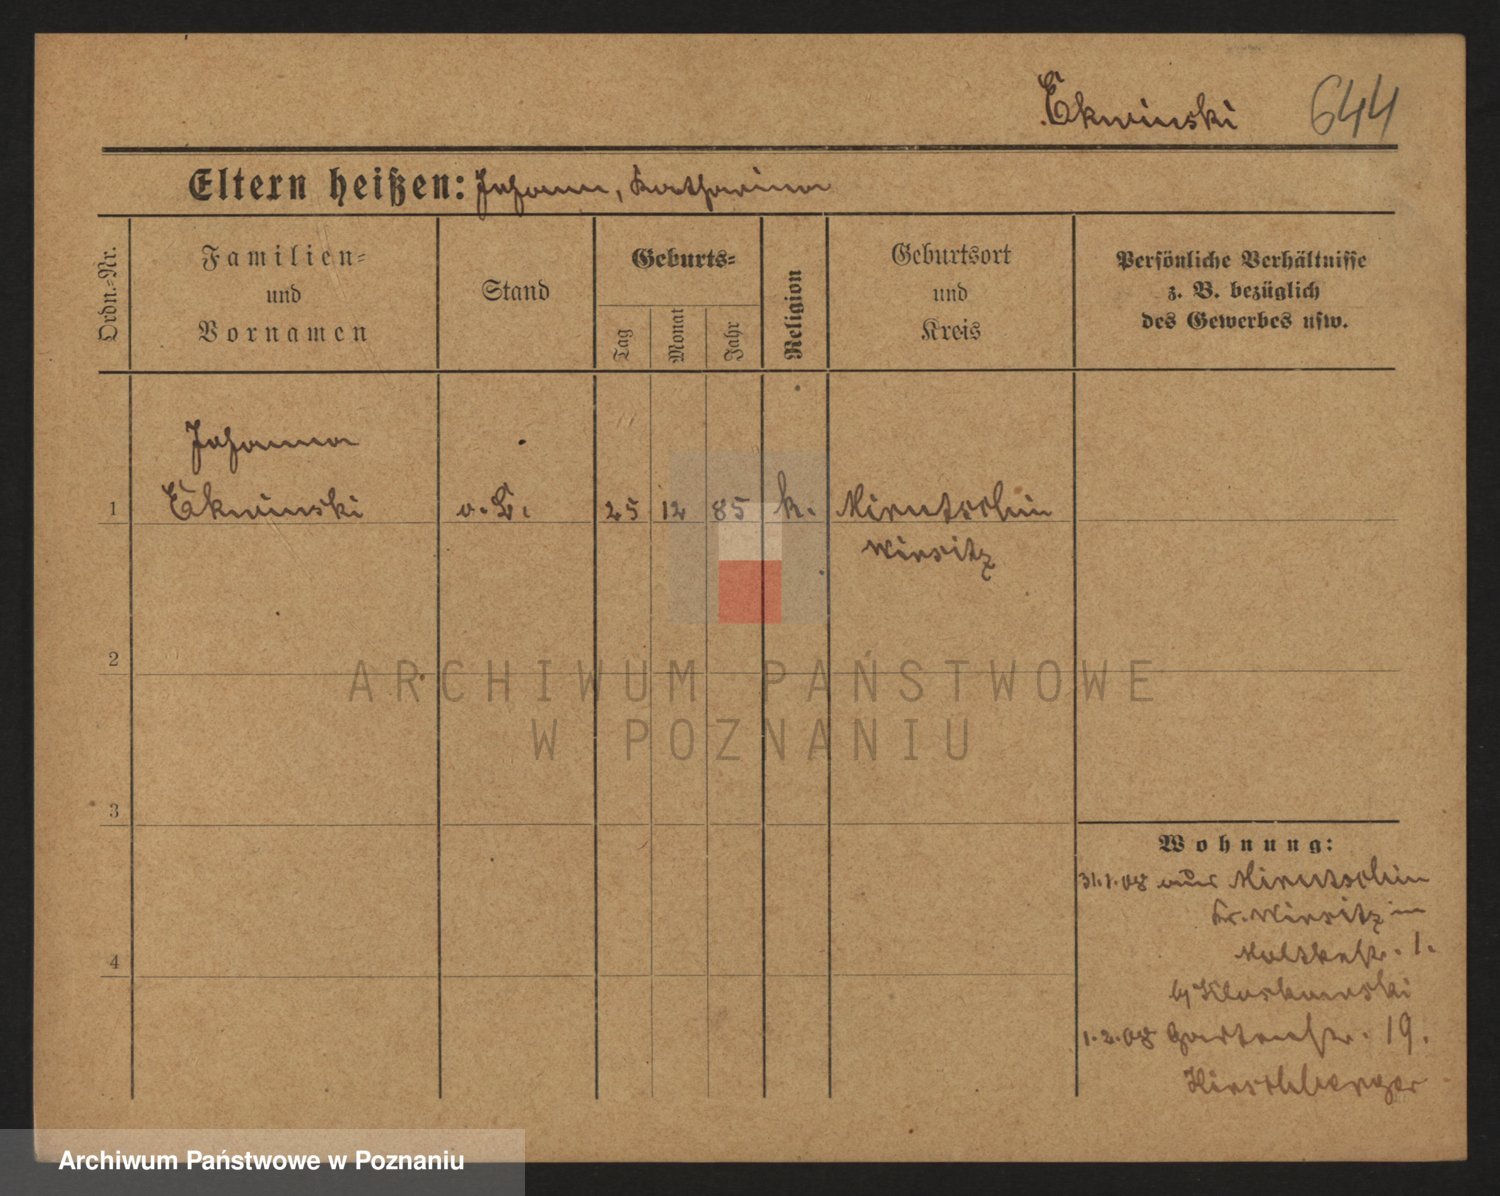 Ekwinski 644
Eltern heißen: Johann, Katharina
Ordn.-Nr.
Familien-
und
Vornamen
Stand
Geburts-
Tag
Monat
Jahr
Religion
Geburtsort
und
Kreis
Persönliche Verhältnisse
z. B. bezüglich
des Gewerbes usw.
Johanna
1 Ekwinski o. B. 25 12 85 k. Mirutschin
Wirsitz
2
ARCHIWUM PAŃSTWOWE
W POZNANIU
3
Wohnung:
31.1.08 aus Mirutschin
Kr. Wirsitz in
4 Moltkestr. 1.
1.2.08 Gartenstr. 19.
Hirschberger
Archiwum Państwowe w Poznaniu